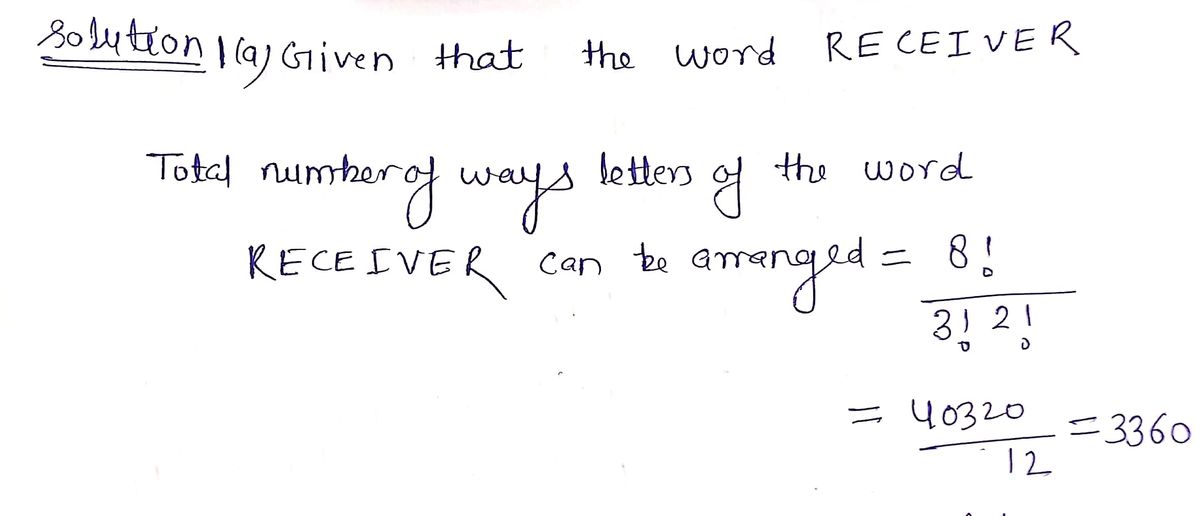 Solution 1(a) Given that the word RECEIVER
Total number of ways letters of the word
RECEIVER can be arranged = 8!
3! 2!
= 40320 = 3360
12